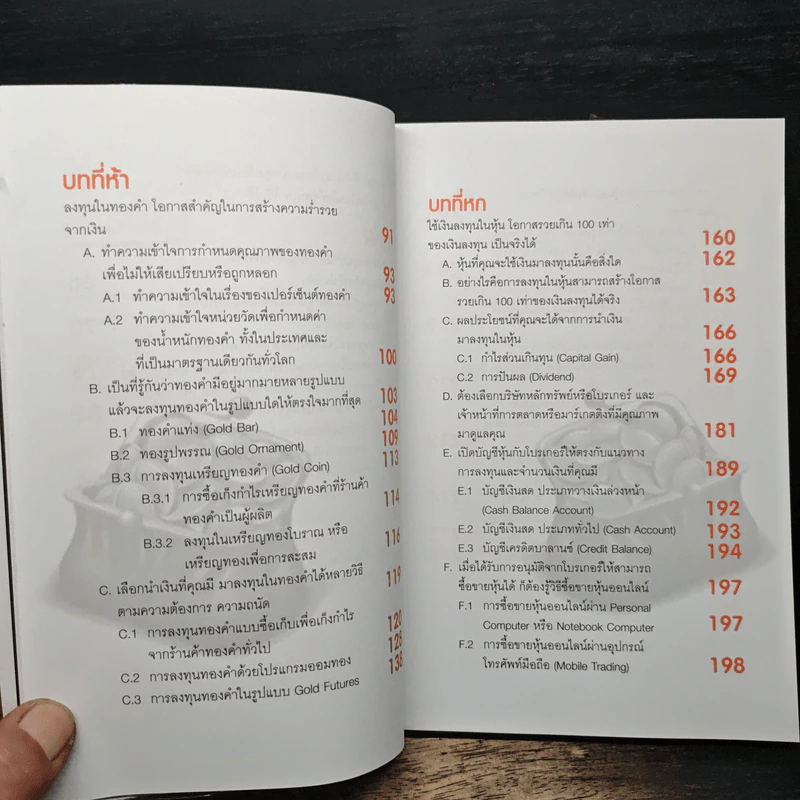 บทที่ห้า
ลงทุนในทองคำ โอกาสสำคัญในการสร้างความร่ำรวย
จากเงิน 91
A. ทำความเข้าใจการกำหนดคุณภาพของทองคำ
เพื่อไม่ให้เสียเปรียบหรือถูกหลอก 93
A.1 ทำความเข้าใจในเรื่องของเปอร์เซ็นต์ทองคำ 93
A.2 ทำความเข้าใจหน่วยวัดเพื่อกำหนดค่า
ของน้ำหนักทองคำ ทั้งในประเทศและ
ที่เป็นมาตรฐานเดียวกันทั่วโลก 100
B. เป็นที่รู้กันว่าทองคำมีอยู่มากมายหลายรูปแบบ
แล้วจะลงทุนทองคำในรูปแบบใดให้ตรงใจมากที่สุด 103
B.1 ทองคำแท่ง (Gold Bar) 104
B.2 ทองรูปพรรณ (Gold Ornament) 109
B.3 การลงทุนเหรียญทองคำ (Gold Coin) 113
B.3.1 การซื้อเก็งกำไรเหรียญทองคำที่ร้านค้า
ทองคำเป็นผู้ผลิต 114
B.3.2 ลงทุนในเหรียญทองโบราณ หรือ
เหรียญทองเพื่อการสะสม 116
C. เลือกนำเงินที่คุณมี มาลงทุนในทองคำได้หลายวิธี
ตามความต้องการ ความถนัด 119
C.1 การลงทุนทองคำแบบซื้อเก็บเพื่อเก็งกำไร
จากร้านค้าทองคำทั่วไป 120
C.2 การลงทุนทองคำด้วยโปรแกรมออมทอง 128
C.3 การลงทุนทองคำในรูปแบบ Gold Futures 136
บทที่หก
ใช้เงินลงทุนในหุ้น โอกาสรวยเกิน 100 เท่า
ของเงินลงทุน เป็นจริงได้ 160
A. หุ้นที่คุณจะใช้เงินมาลงทุนนั้นคือสิ่งใด 162
B. อย่างไรคือการลงทุนในหุ้นสามารถสร้างโอกาส
รวยเกิน 100 เท่าของเงินลงทุนได้จริง 163
C. ผลประโยชน์ที่คุณจะได้จากการนำเงิน
มาลงทุนในหุ้น 166
C.1 กำไรส่วนเกินทุน (Capital Gain) 166
C.2 การปันผล (Dividend) 169
D. ต้องเลือกบริษัทหลักทรัพย์หรือโบรเกอร์ และ
เจ้าหน้าที่การตลาดหรือมาร์เกตติงที่มีคุณภาพ
มาดูแลคุณ 181
E. เปิดบัญชีหุ้นกับโบรเกอร์ให้ตรงกับแนวทาง
การลงทุนและจำนวนเงินที่คุณมี 189
E.1 บัญชีเงินสด ประเภทวางเงินล่วงหน้า
(Cash Balance Account) 192
E.2 บัญชีเงินสด ประเภททั่วไป (Cash Account) 193
E.3 บัญชีเครดิตบาลานซ์ (Credit Balance) 194
F. เมื่อได้รับการอนุมัติจากโบรเกอร์ให้สามารถ
ซื้อขายหุ้นได้ ก็ต้องรู้วิธีซื้อขายหุ้นออนไลน์ 197
F.1 การซื้อขายหุ้นออนไลน์ผ่าน Personal
Computer หรือ Notebook Computer 197
F.2 การซื้อขายหุ้นออนไลน์ผ่านอุปกรณ์
โทรศัพท์มือถือ (Mobile Trading) 198